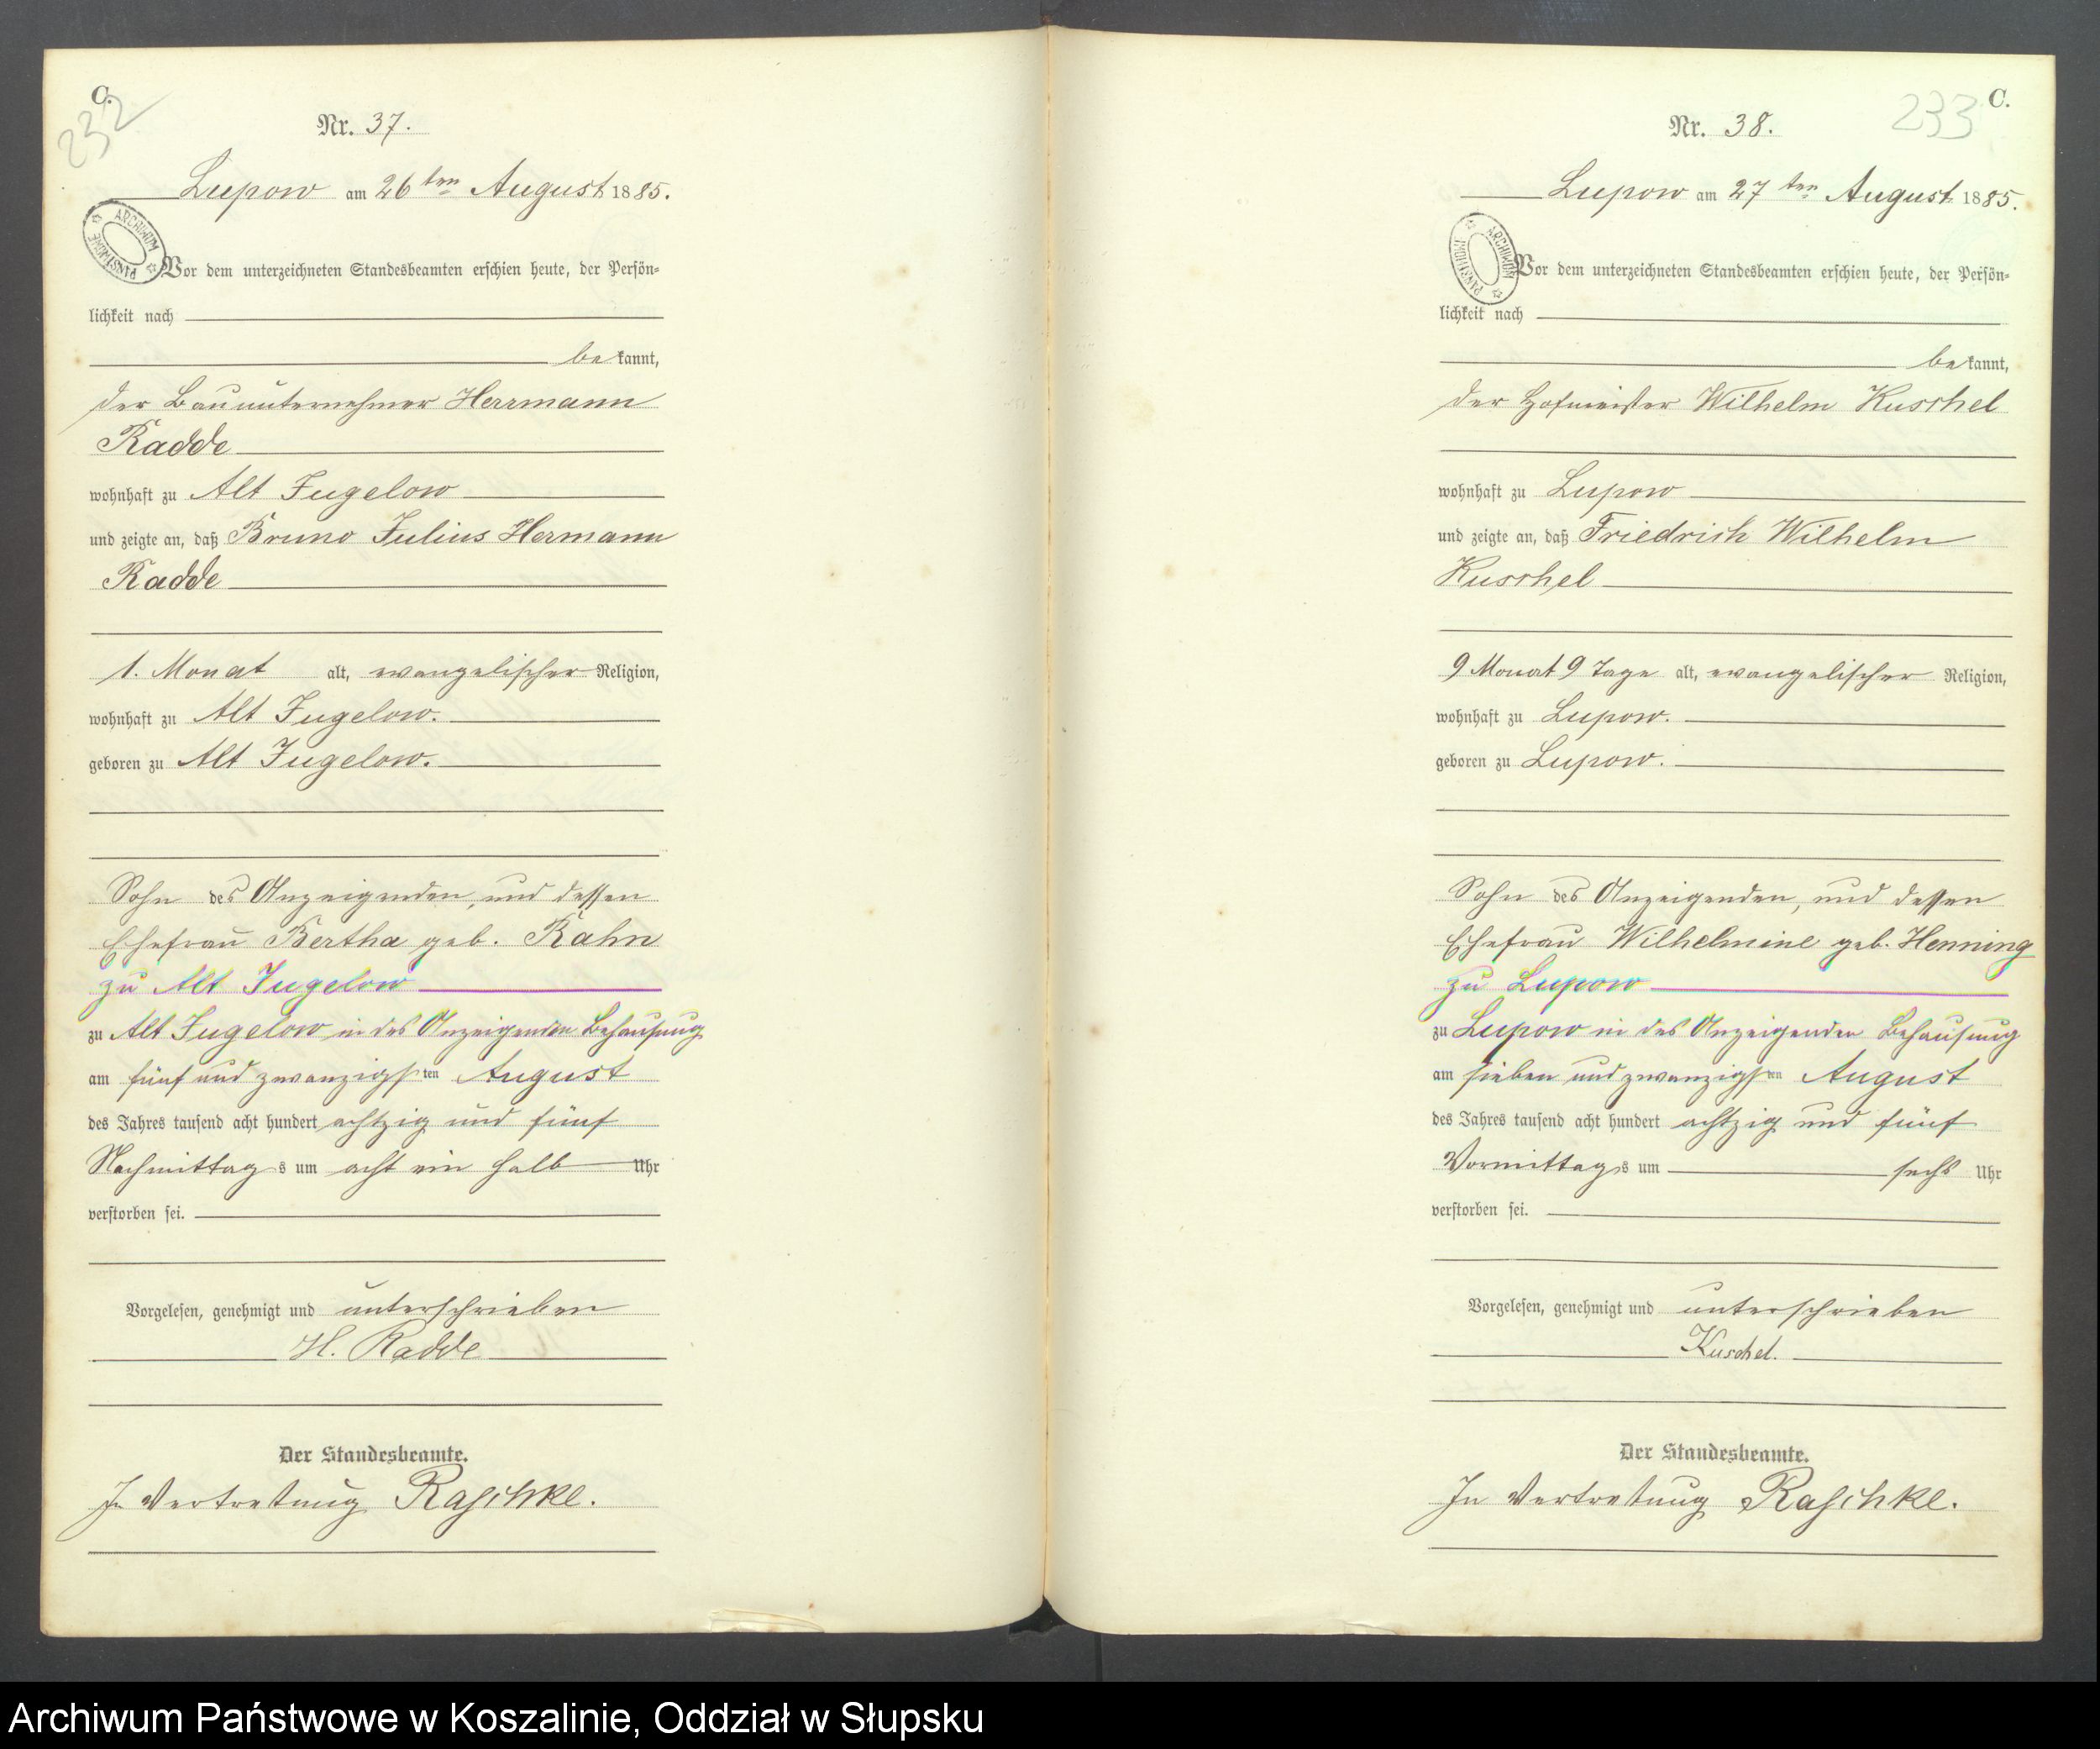 C.
232
Nr. 37.
Lupow am 26ten August 1885.
ARCHIWUM PAŃSTWOWE
Vor dem unterzeichneten Standesbeamten erschien heute, der Persön-
lichkeit nach
bekannt,
der Bauunternehmer Herrmann
Radde
wohnhaft zu Alt Jugelow
und zeigte an, daß Bruno Julius Hermann
Radde
1. Monat alt, evangelischer Religion,
wohnhaft zu Alt Jugelow.
geboren zu Alt Jugelow.
Sohn des Anzeigenden, und dessen
Ehefrau Bertha geb. Rahn
zu Alt Jugelow
zu Alt Jugelow in des Anzeigenden Behausung
am fünf und zwanzigsten August
des Jahres tausend acht hundert achtzig und fünf
Nachmittags um acht ein halb Uhr
verstorben sei.
Vorgelesen, genehmigt und unterschrieben
H. Radde
Der Standesbeamte.
In Vertretung Raschke.
C.
233
Nr. 38.
Lupow am 27ten August 1885.
ARCHIWUM PAŃSTWOWE
Vor dem unterzeichneten Standesbeamten erschien heute, der Persön-
lichkeit nach
bekannt,
der Hofmeister Wilhelm Kuschel
wohnhaft zu Lupow
und zeigte an, daß Friedrich Wilhelm
Kuschel
9 Monat 9 Tage alt, evangelischer Religion,
wohnhaft zu Lupow.
geboren zu Lupow.
Sohn des Anzeigenden, und dessen
Ehefrau Wilhelmine geb. Henning
zu Lupow
zu Lupow in des Anzeigenden Behausung
am sieben und zwanzigsten August
des Jahres tausend acht hundert achtzig und fünf
Vormittags um sechs Uhr
verstorben sei.
Vorgelesen, genehmigt und unterschrieben
Kuschel.
Der Standesbeamte.
In Vertretung Raschke.
Archiwum Państwowe w Koszalinie, Oddział w Słupsku